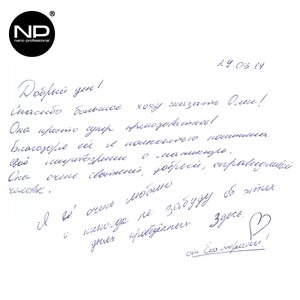 NP
nano professional
29.03.17
Добрый день!
Спасибо большое хочу сказать Оле!
Она просто супер преподаватель!
Благодаря ей я
своё мировоззрение о маникюре.
Она очень светлый, добрый, справедливый
человек.
Я её очень люблю
и никогда не забуду об этих
днях проведённых здесь
от Екатерины!